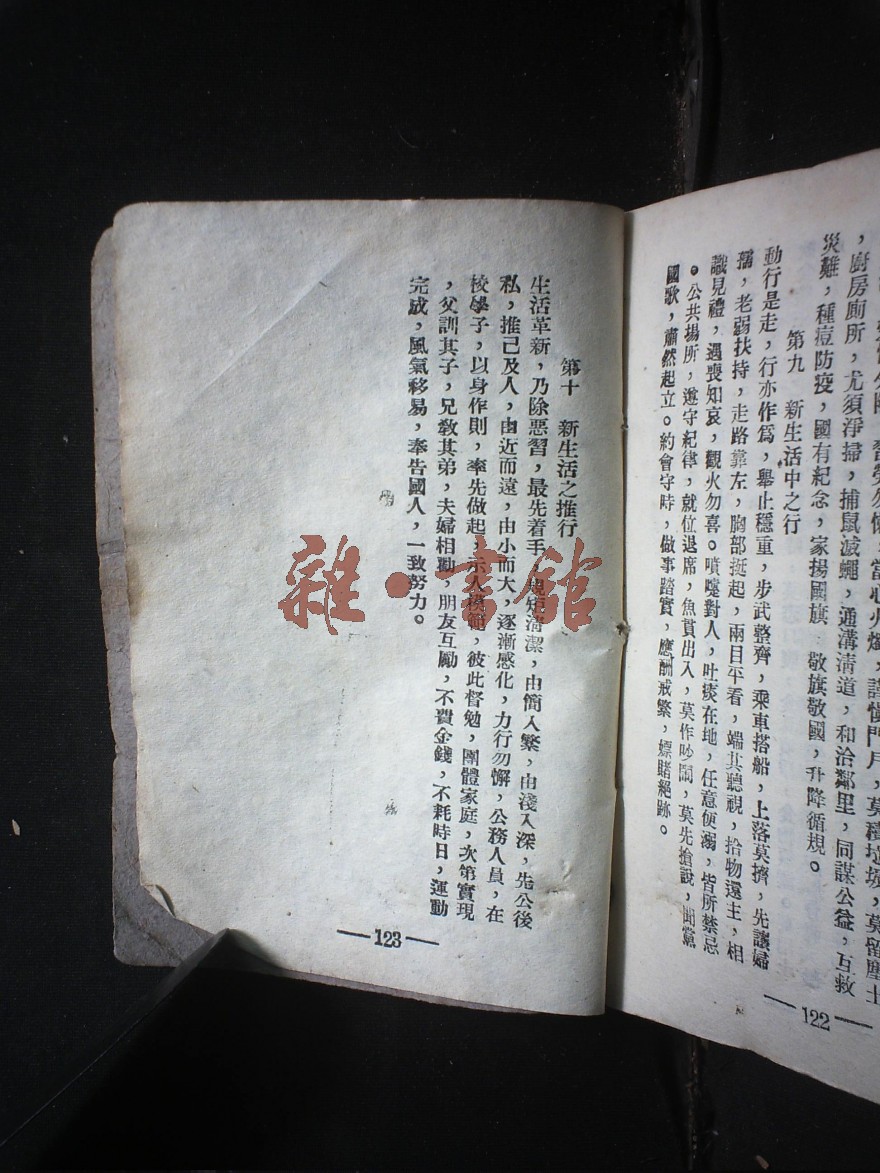 ，廚房廁所，尤須淨掃，捕鼠滅蠅，通溝清道，和洽鄰里，同謀公益，互救
災難，種痘防疫，國有紀念，家揚國旗，敬旗敬國，升降循規。
第九　新生活中之行
動行是走，行亦作為，舉止穩重，步武整齊，乘車搭船，上落莫擠，先讓婦
孺，老弱扶持，走路靠左，胸部挺起，兩目平看，端其聽視，拾物還主，相
識見禮，遇喪知哀，觀火勿喜。噴嚏對人，吐痰在地，任意便溺，皆所禁忌
。公共場所，遵守紀律，就位退席，魚貫出入，莫作吵鬧，莫先搶說，聞黨
國歌，肅然起立。約會守時，做事踏實，應酬戒繁，嫖賭絕跡。
—122—
第十　新生活之推行
生活革新，乃除惡習，最先着手，規矩清潔，由簡入繁，由淺入深，先公後
私，推己及人，由近而遠，由小而大，逐漸感化，力行勿懈，公務人員，在
校學子，以身作則，率先做起，示人模範，彼此督勉，團體家庭，次第實現
，父訓其子，兄教其弟，夫婦相勸，朋友互勵，不費金錢，不耗時日，運動
完成，風氣移易，奉告國人，一致努力。
—123—
雜·書館